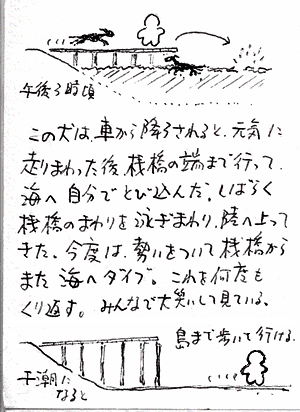 午後3時頃
この犬は、車から降ろされると、元気に
走りまわった後、桟橋の端まで行って、
海へ自分でとび込んだ。しばらく
桟橋のまわりを泳ぎまわり、陸へ上って
きた。今度は、勢いをついて桟橋から
また海へダイブ。これを何度も
くり返す。みんなで大笑いして見ている。
島まで歩いて行ける。
干潮に
なると